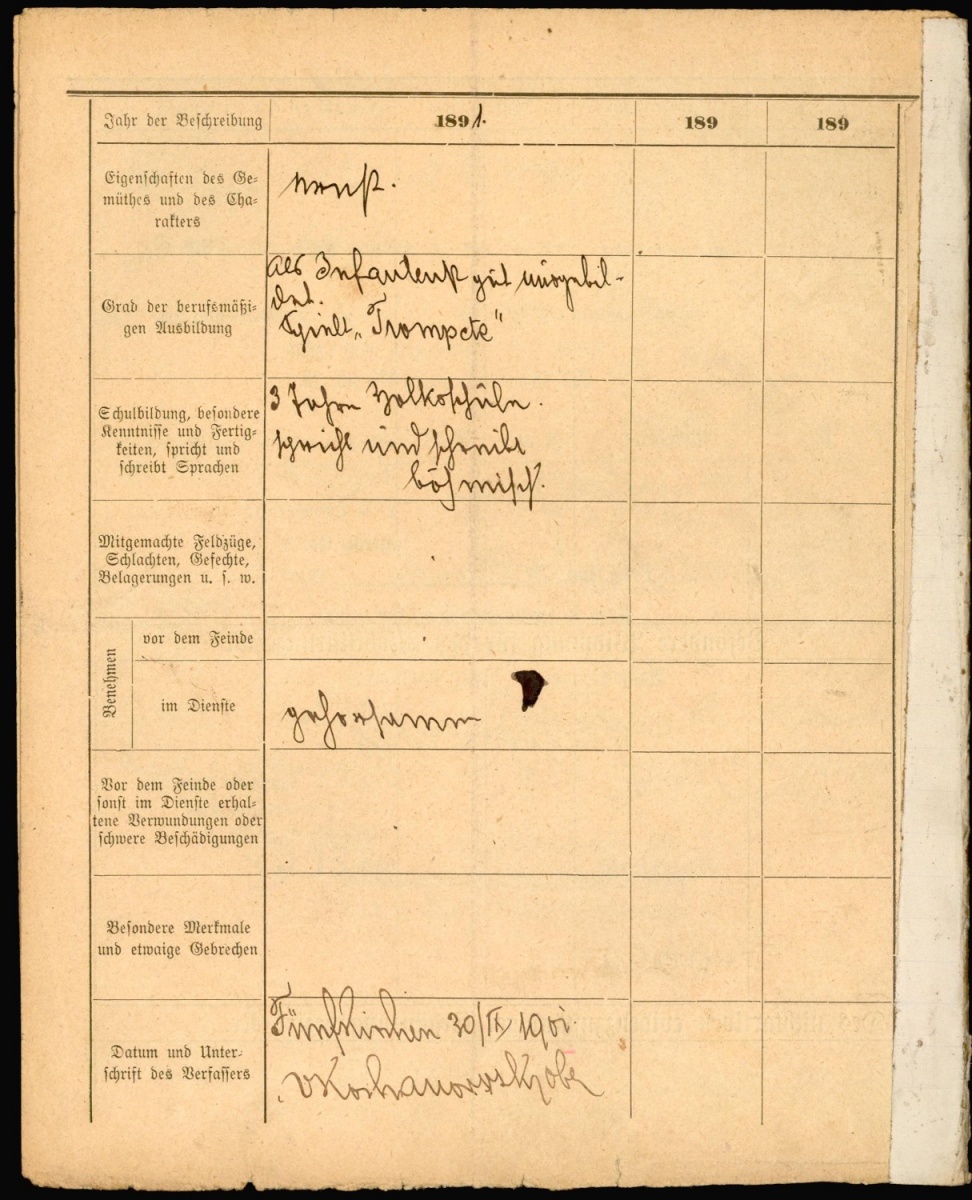 Jahr der Beschreibung
1891.
189
189
Eigenschaften des Ge-
müthes und des Cha-
rakters
ernst.
Grad der berufsmäßi-
gen Ausbildung
als Infanterist gut ausgebil-
det.
Spielt „Trompete“
Schulbildung, besondere
Kenntnisse und Fertig-
keiten, spricht und
schreibt Sprachen
3 Jahre Volksschule.
spricht und schreibt
böhmisch.
Mitgemachte Feldzüge,
Schlachten, Gefechte,
Belagerungen u. s. w.
Benehmen
vor dem Feinde
im Dienste
gehorsamm
Vor dem Feinde oder
sonst im Dienste erhal-
tene Verwundungen oder
schwere Beschädigungen
Besondere Merkmale
und etwaige Gebrechen
Datum und Unter-
schrift des Verfassers
Fünfkirchen 30/IX 1901